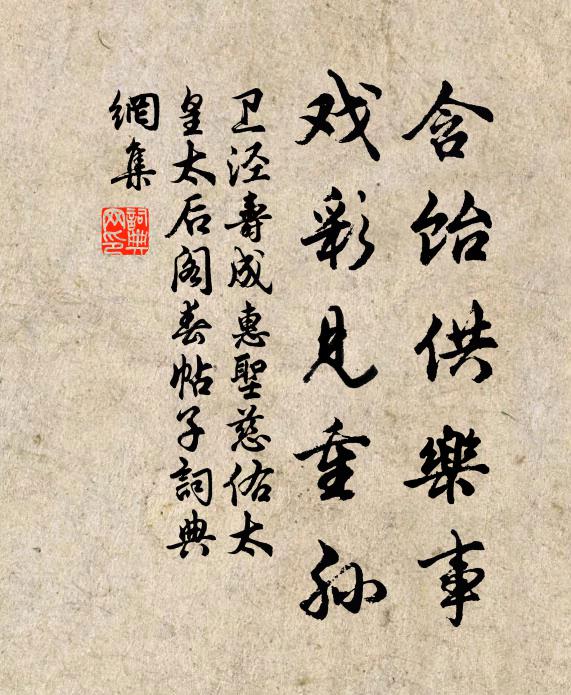 含饴供樂事
戏彩見重孙
卫泾壽成惠聖慈佑太
皇太后阁春帖子詞典
網集
詞典网印